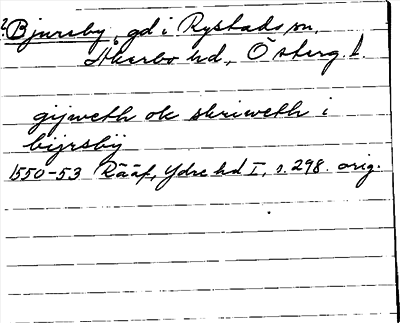 ? Bjursby, gd i Rystads sn,
Åkerbo hd, Österg. l.
gijweth ok skriweth i
bijrsbÿ
1550-53 Rääf, Ydre hd I, s. 298. orig.